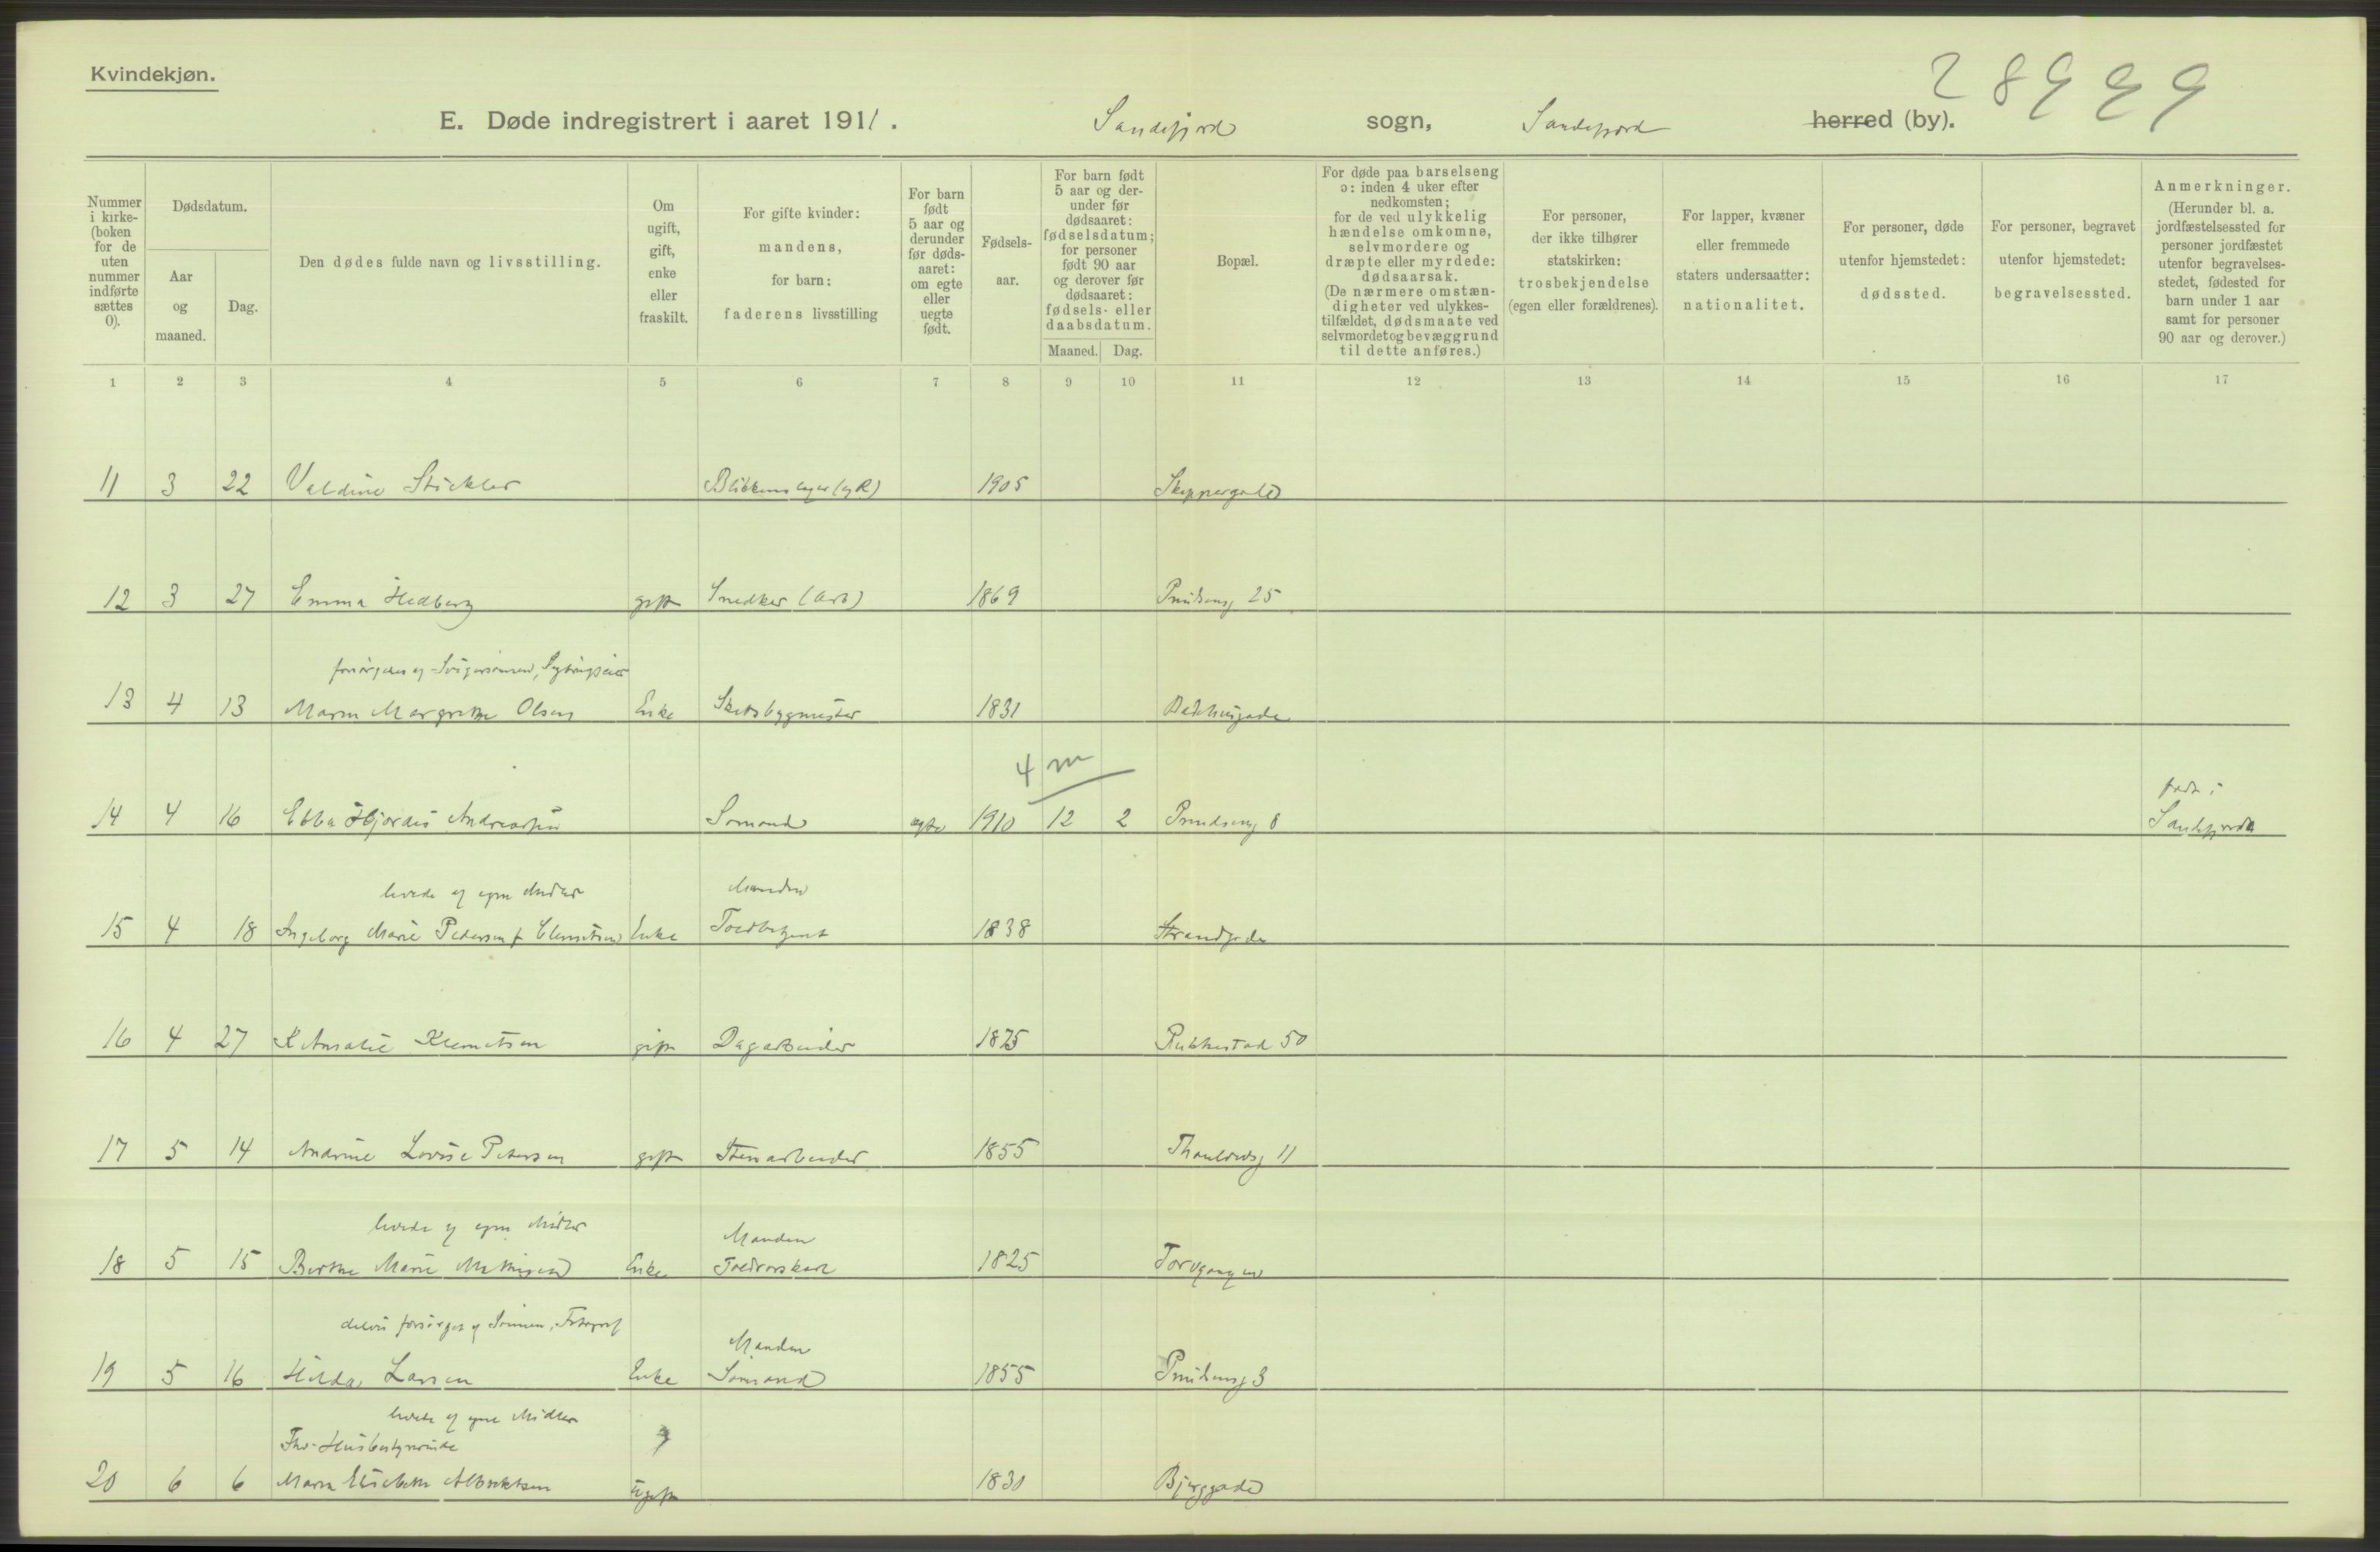 Kvindekjøn.
28999
E. Døde indregistrert i aaret 1911. Sandefjord sogn, Sandefjord herred (by).
Nummer i kirke- (boken for de uten nummer indførte sættes 0).
Dødsdatum.
Aar og maaned.
Dag.
Den dødes fulde navn og livsstilling.
Om ugift, gift, enke eller fraskilt.
For gifte kvinder: mandens, for barn: faderens livsstilling
For barn født 5 aar og derunder før døds- aaret: om egte eller uegte født.
Fødsels- aar.
For barn født 5 aar og der- under før dødsaaret: fødselsdatum; for personer født 90 aar og derover før dødsaaret: fødsels- eller daabsdatum.
Maaned. Dag.
Bopæl.
For døde paa barselseng ɔ: inden 4 uker efter nedkomsten; for de ved ulykkelig hændelse omkomne, selvmordere og dræpte eller myrdede: dødsaarsak. (De nærmere omstæn- digheter ved ulykkes- tilfældet, dødsmaate ved selvmordet og bevæggrund til dette anføres.)
For personer, der ikke tilhører statskirken: trosbekjendelse (egen eller forældrenes).
For lapper, kvæner eller fremmede staters undersaatter: nationalitet.
For personer, døde utenfor hjemstedet: dødssted.
For personer, begravet utenfor hjemstedet: begravelsessted.
Anmerkninger. (Herunder bl. a. jordfæstelsessted for personer jordfæstet utenfor begravelses- stedet, fødested for barn under 1 aar samt for personer 90 aar og derover.)
1 2 3 4 5 6 7 8 9 10 11 12 13 14 15 16 17
11 3 22 Valdine Stickler Blikkenslager 1905 Skippergade
12 3 27 Emma Hedberg gift Snedker (Arb) 1869 Prindseng 25
forsørgedes af Svigersønnen,
13 4 13 Maren Margrethe Olsen Enke Skibsbygmester 1831 Badehusgade
4 m
født i
14 4 16 Ebba Hjørdis Andreassen Sømand egte 1910 12 2 Prindseng 8 Sandefjord
levede af egne Midler Manden
15 4 18 Ingeborg Marie Pedersen f. Clemetsen Enke Toldbetjent 1838 Strandgade
16 4 27 K Amalie Klemetsen gift Dagarbeider 1875 Pukkestad 50
17 5 14 Andrine Lovise Petersen gift Stenarbeider 1855 Thaulowsg 11
levede af egne Midler Manden
18 5 15 Berthe Marie Mathisen Enke Toldroerskarl 1825 Torvgangen
delvis forsørget af Sønnen, Fotograf Manden
19 5 16 Hilda Larsen Enke Sømand 1855 Prindseng 3
levede af egne Midler
Fhv. Husbestyrerinde
20 6 6 Maren Elisabeth Albrektsen Ugift 1830 Bjerggade